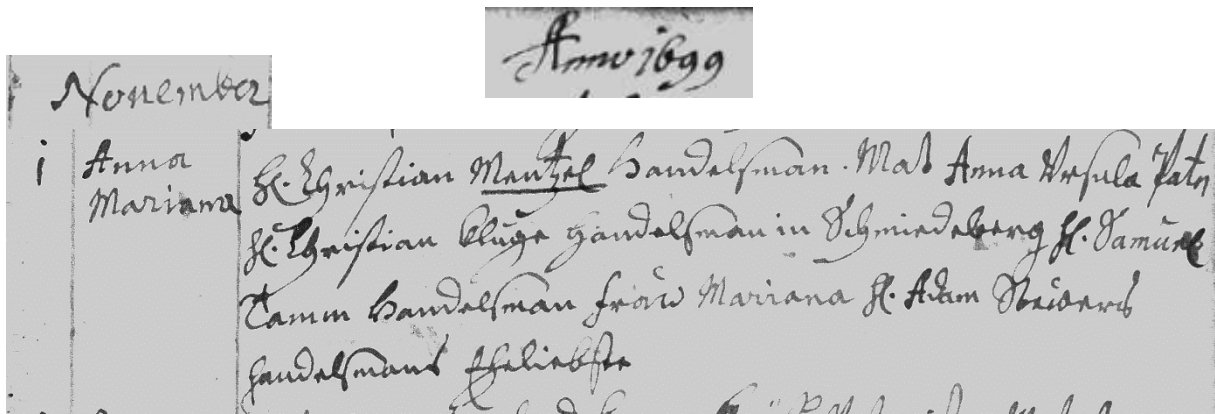 Anno 1699
November
1 Anna Mariana
H. Christian Mentzel Handelsman. Mat Anna Ursula Patr
H. Christian Kluge Handelsman in Schmiedeberg H. Samuel
Tamm Handelsman Frau Mariana H. Adam
Handelsmans Eheliebste